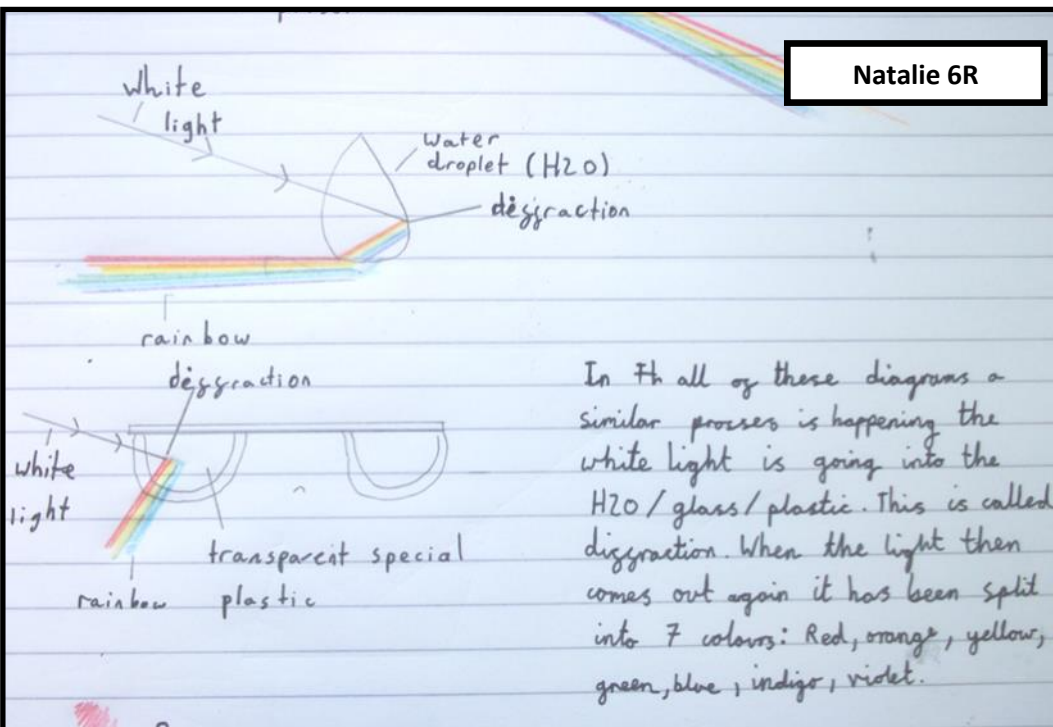 Natalie 6R
white
light
water
droplet (H2O)
diffraction
rainbow
diffraction
white
light
transparent special
plastic
rainbow
In Th all of these diagrams a
similar proses is happening the
white light is going into the
H2O/glass/plastic. This is called
diffraction. When the light then
comes out again it has been split
into 7 colours: Red, orange, yellow,
green, blue, indigo, violet.